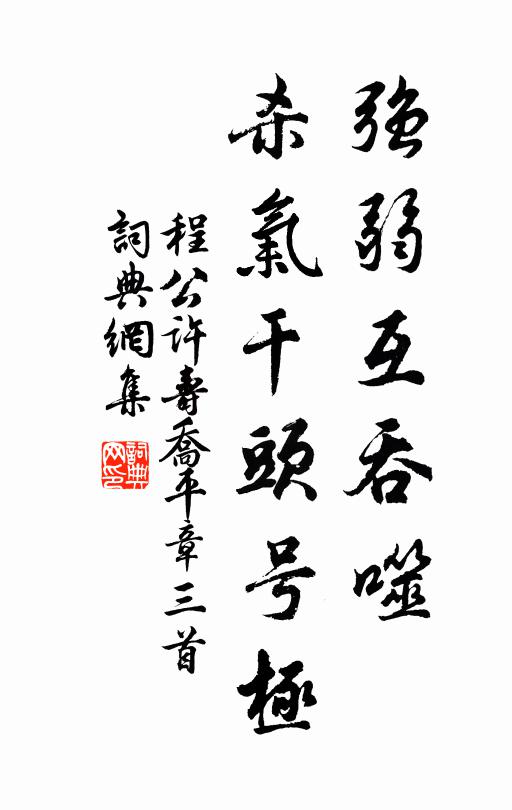 強弱互吞噬
杀氣干頭号極
程公許壽喬平章三首
詞典網集
詞典
网印